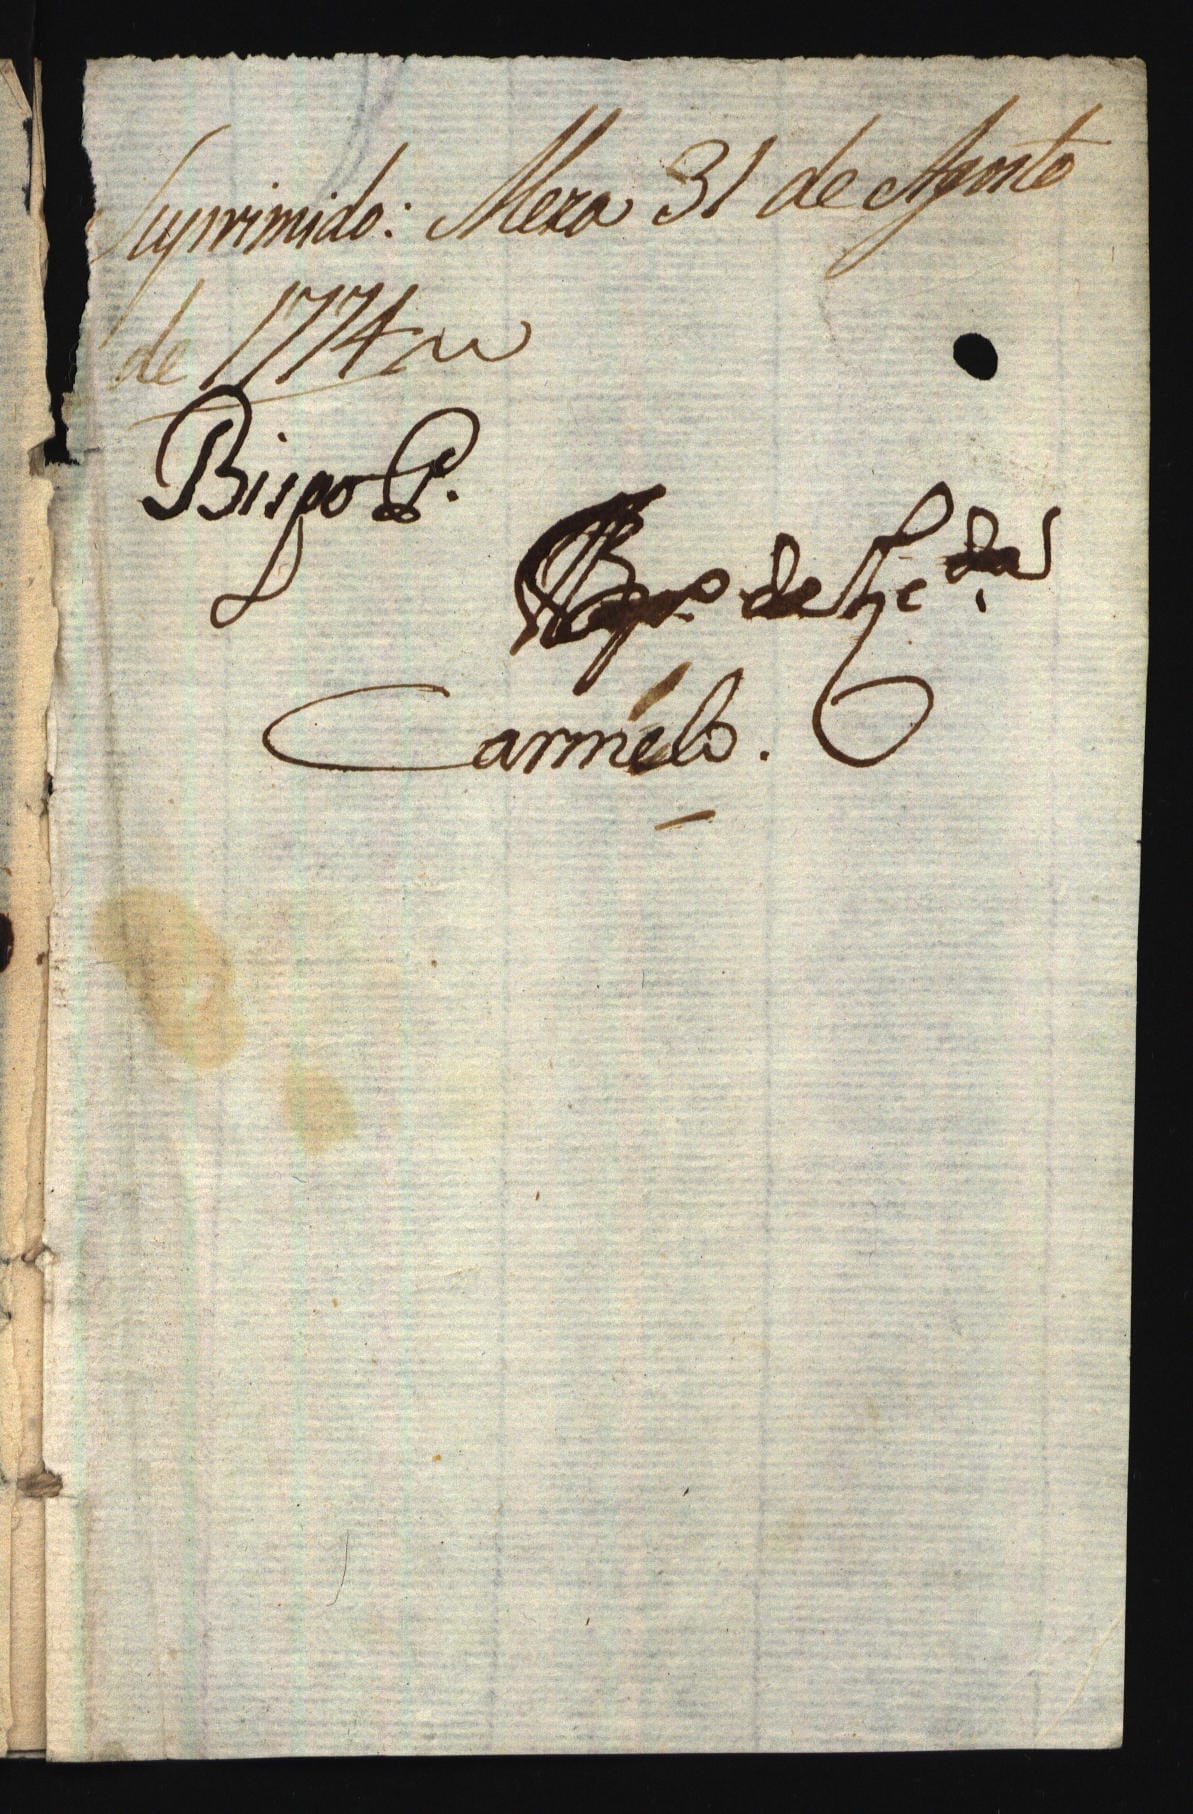 Suprimido: Meza 31 de Agosto
de 1774
Bispo P.
de
Carmélo.